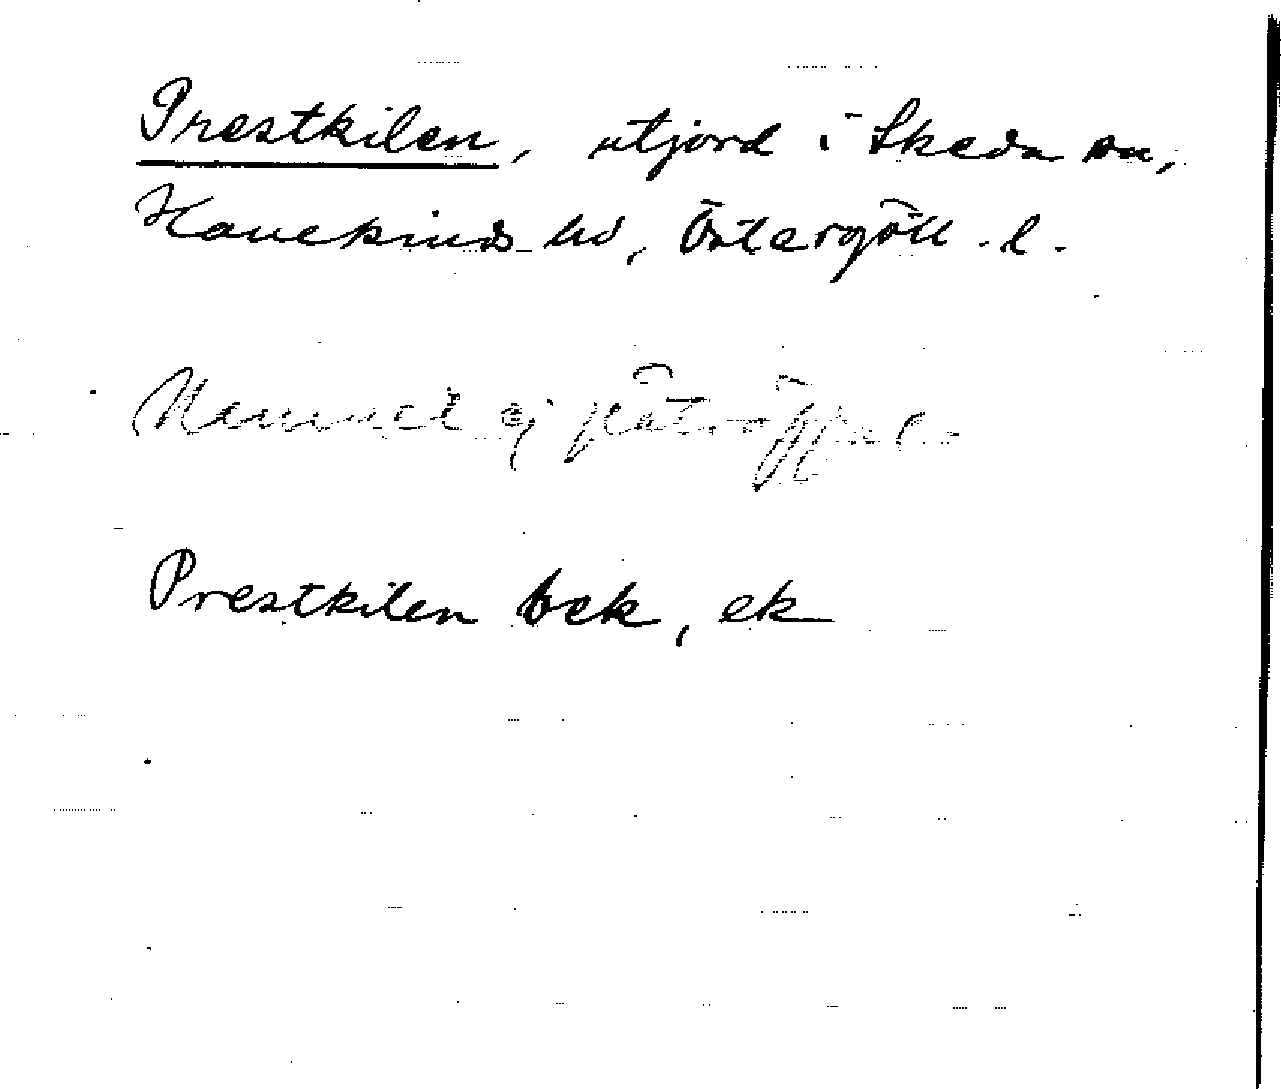 Prestkilen, utjord i Skeda sn,
Hanekinds hd, Östergötl. l.
Namnet ej
Prestkilen bek, ek